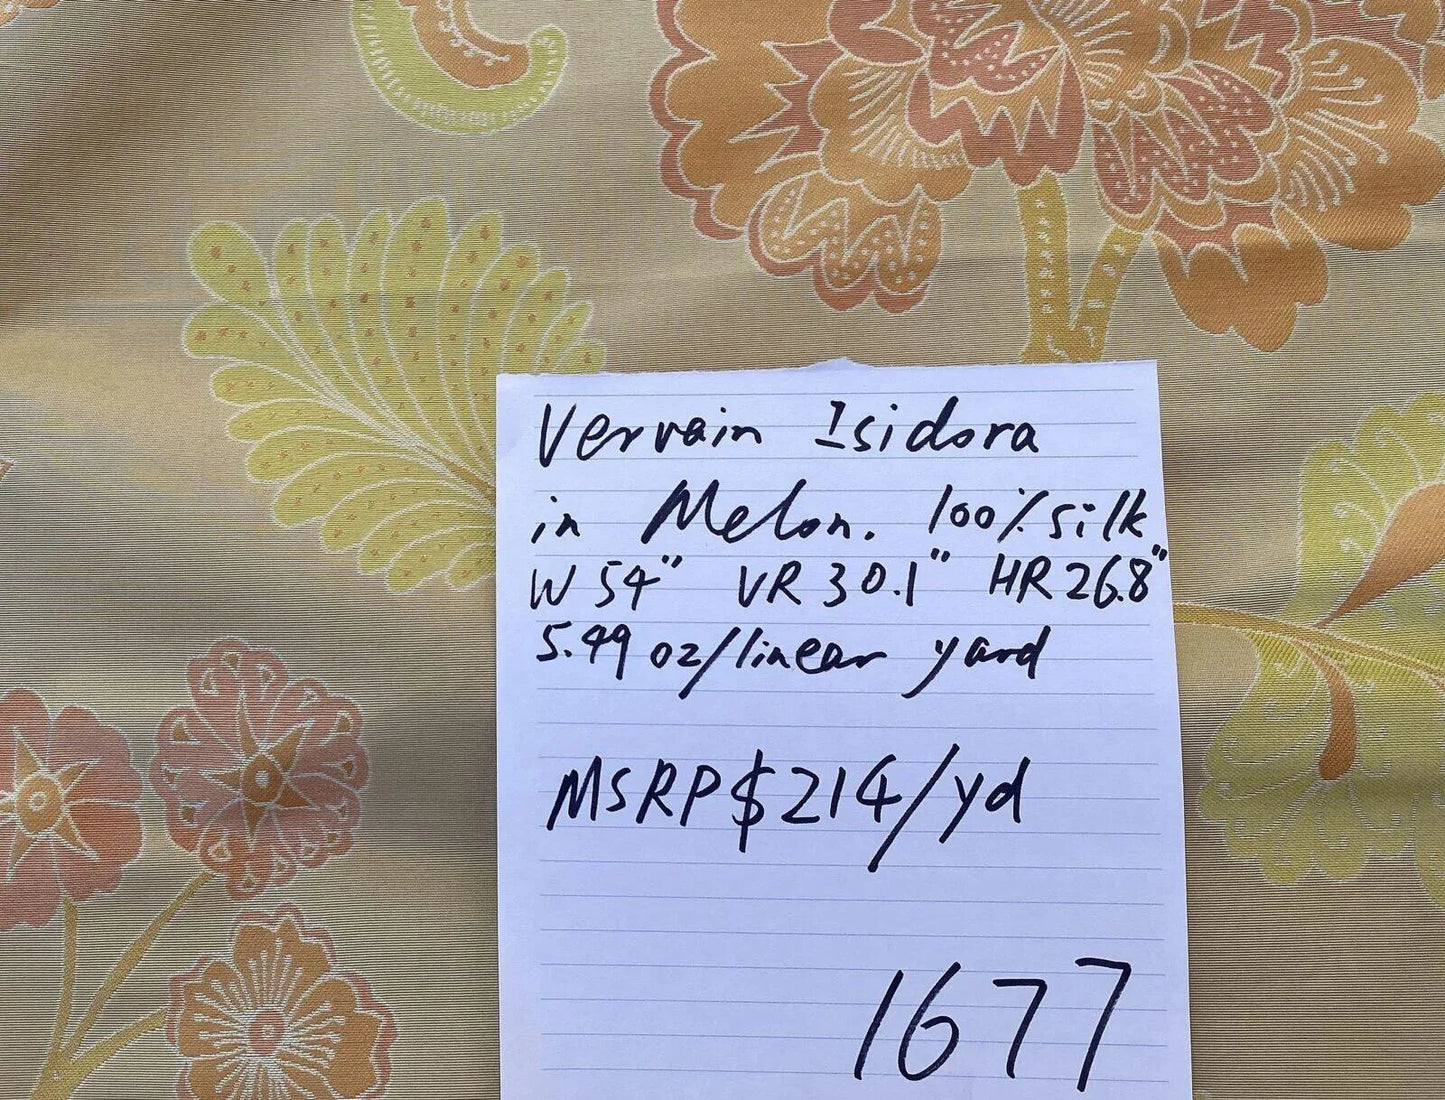 Vervain Isidora
in Melon. 100% silk
W 54" VR 30.1" HR 26.8"
5.49 oz/linear yard
MSRP $214/yd
1677